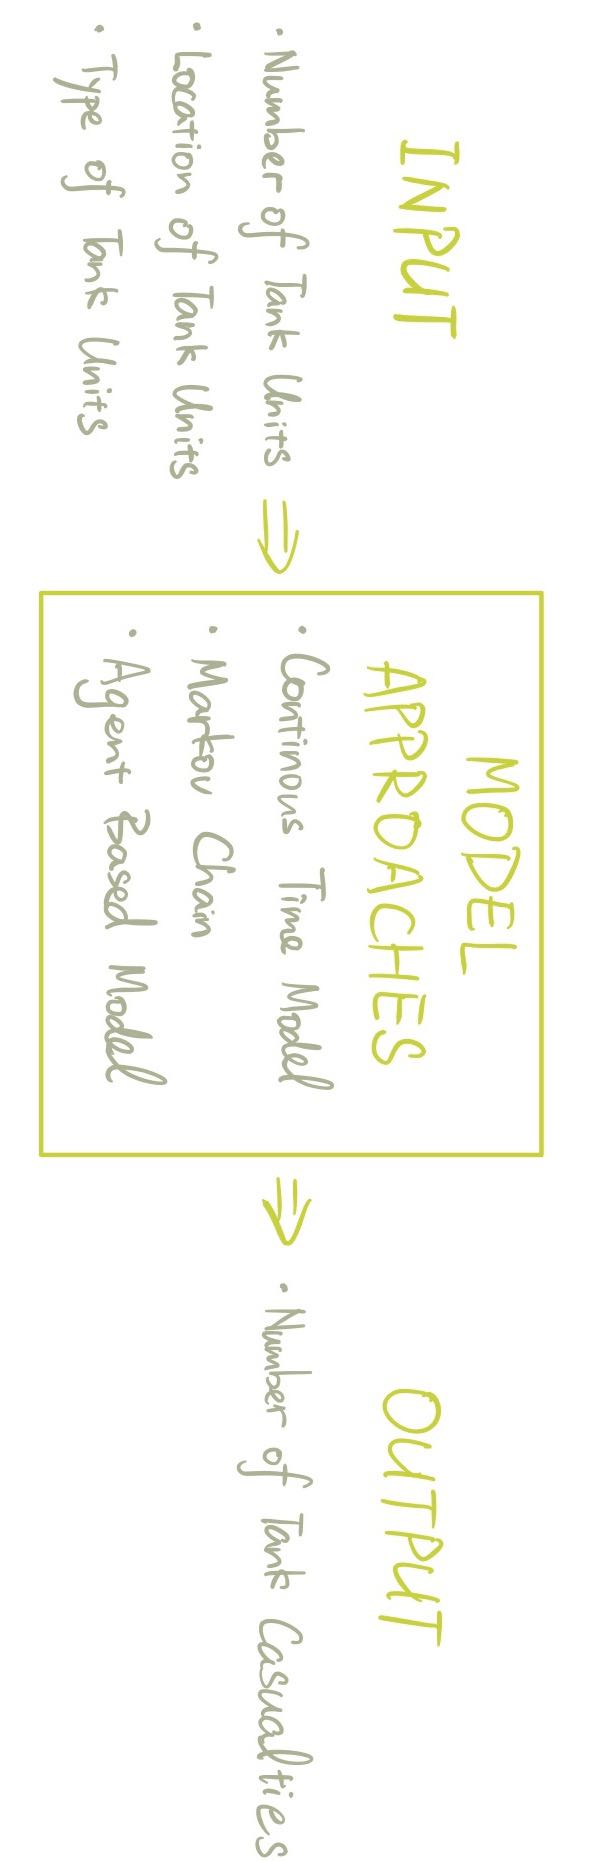 INPUT
· Number of Tank Units
· Location of Tank Units
· Type of Tank Units
MODEL
APPROACHES
· Continous Time Model
· Markov Chain
· Agent Based Model
OUTPUT
· Number of Tank Casualties